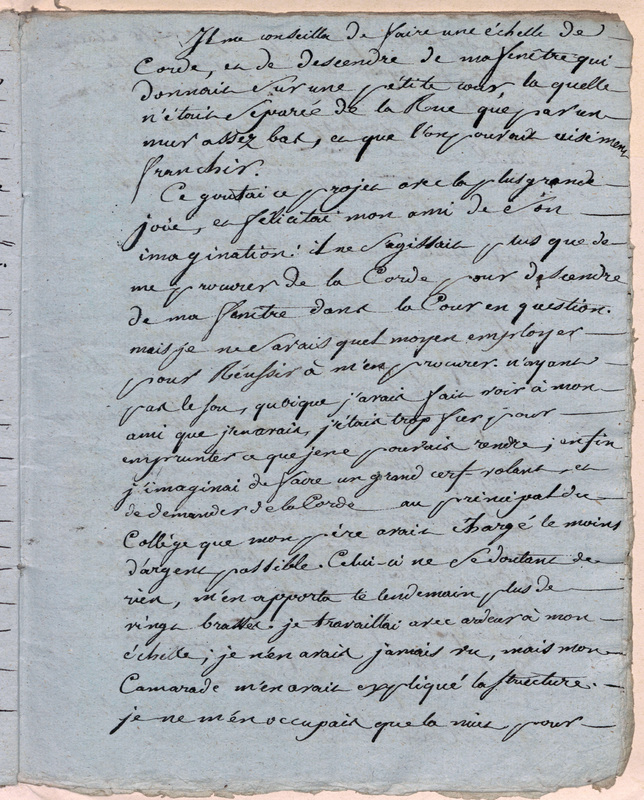 Il me conseilla de faire une échelle de
Corde, et de descendre de ma fenêtre qui
donnait sur une pétite cour, la quelle
n'étoit séparée de la Rue que par un
mur assez bas, et que l'on pouvait aisément
franchir.
Ce goutai ce projet avec la plus grande
joie, et félicitai mon ami de son
imagination: il ne s'agissait plus que de
me procurer de la Corde pour descendre
de ma fenêtre dans la Cour en question.
mais je ne savais quel moyen employer
pour Réussir à m'en procurer. n'ayant
pas le sou, quoique j'avais fait voir à mon
ami que j'en avais, j'étais trop fier pour
emprunter ce que je ne pouvais rendre; enfin
j'imaginai de faire un grand cerf-volant, et
de demander de la Corde au principal du
Collège que mon père avait chargé le moins
d'argent possible. Celui-ci ne se doutant de
rien, m'en apporta le lendemain plus de
vingt brasses. je travaillai avec ardeur à mon
échelle; je n'en avais jamais vu, mais mon
Camarade m'en avait expliqué la structure.
je ne m'en occupait que la nuit pour